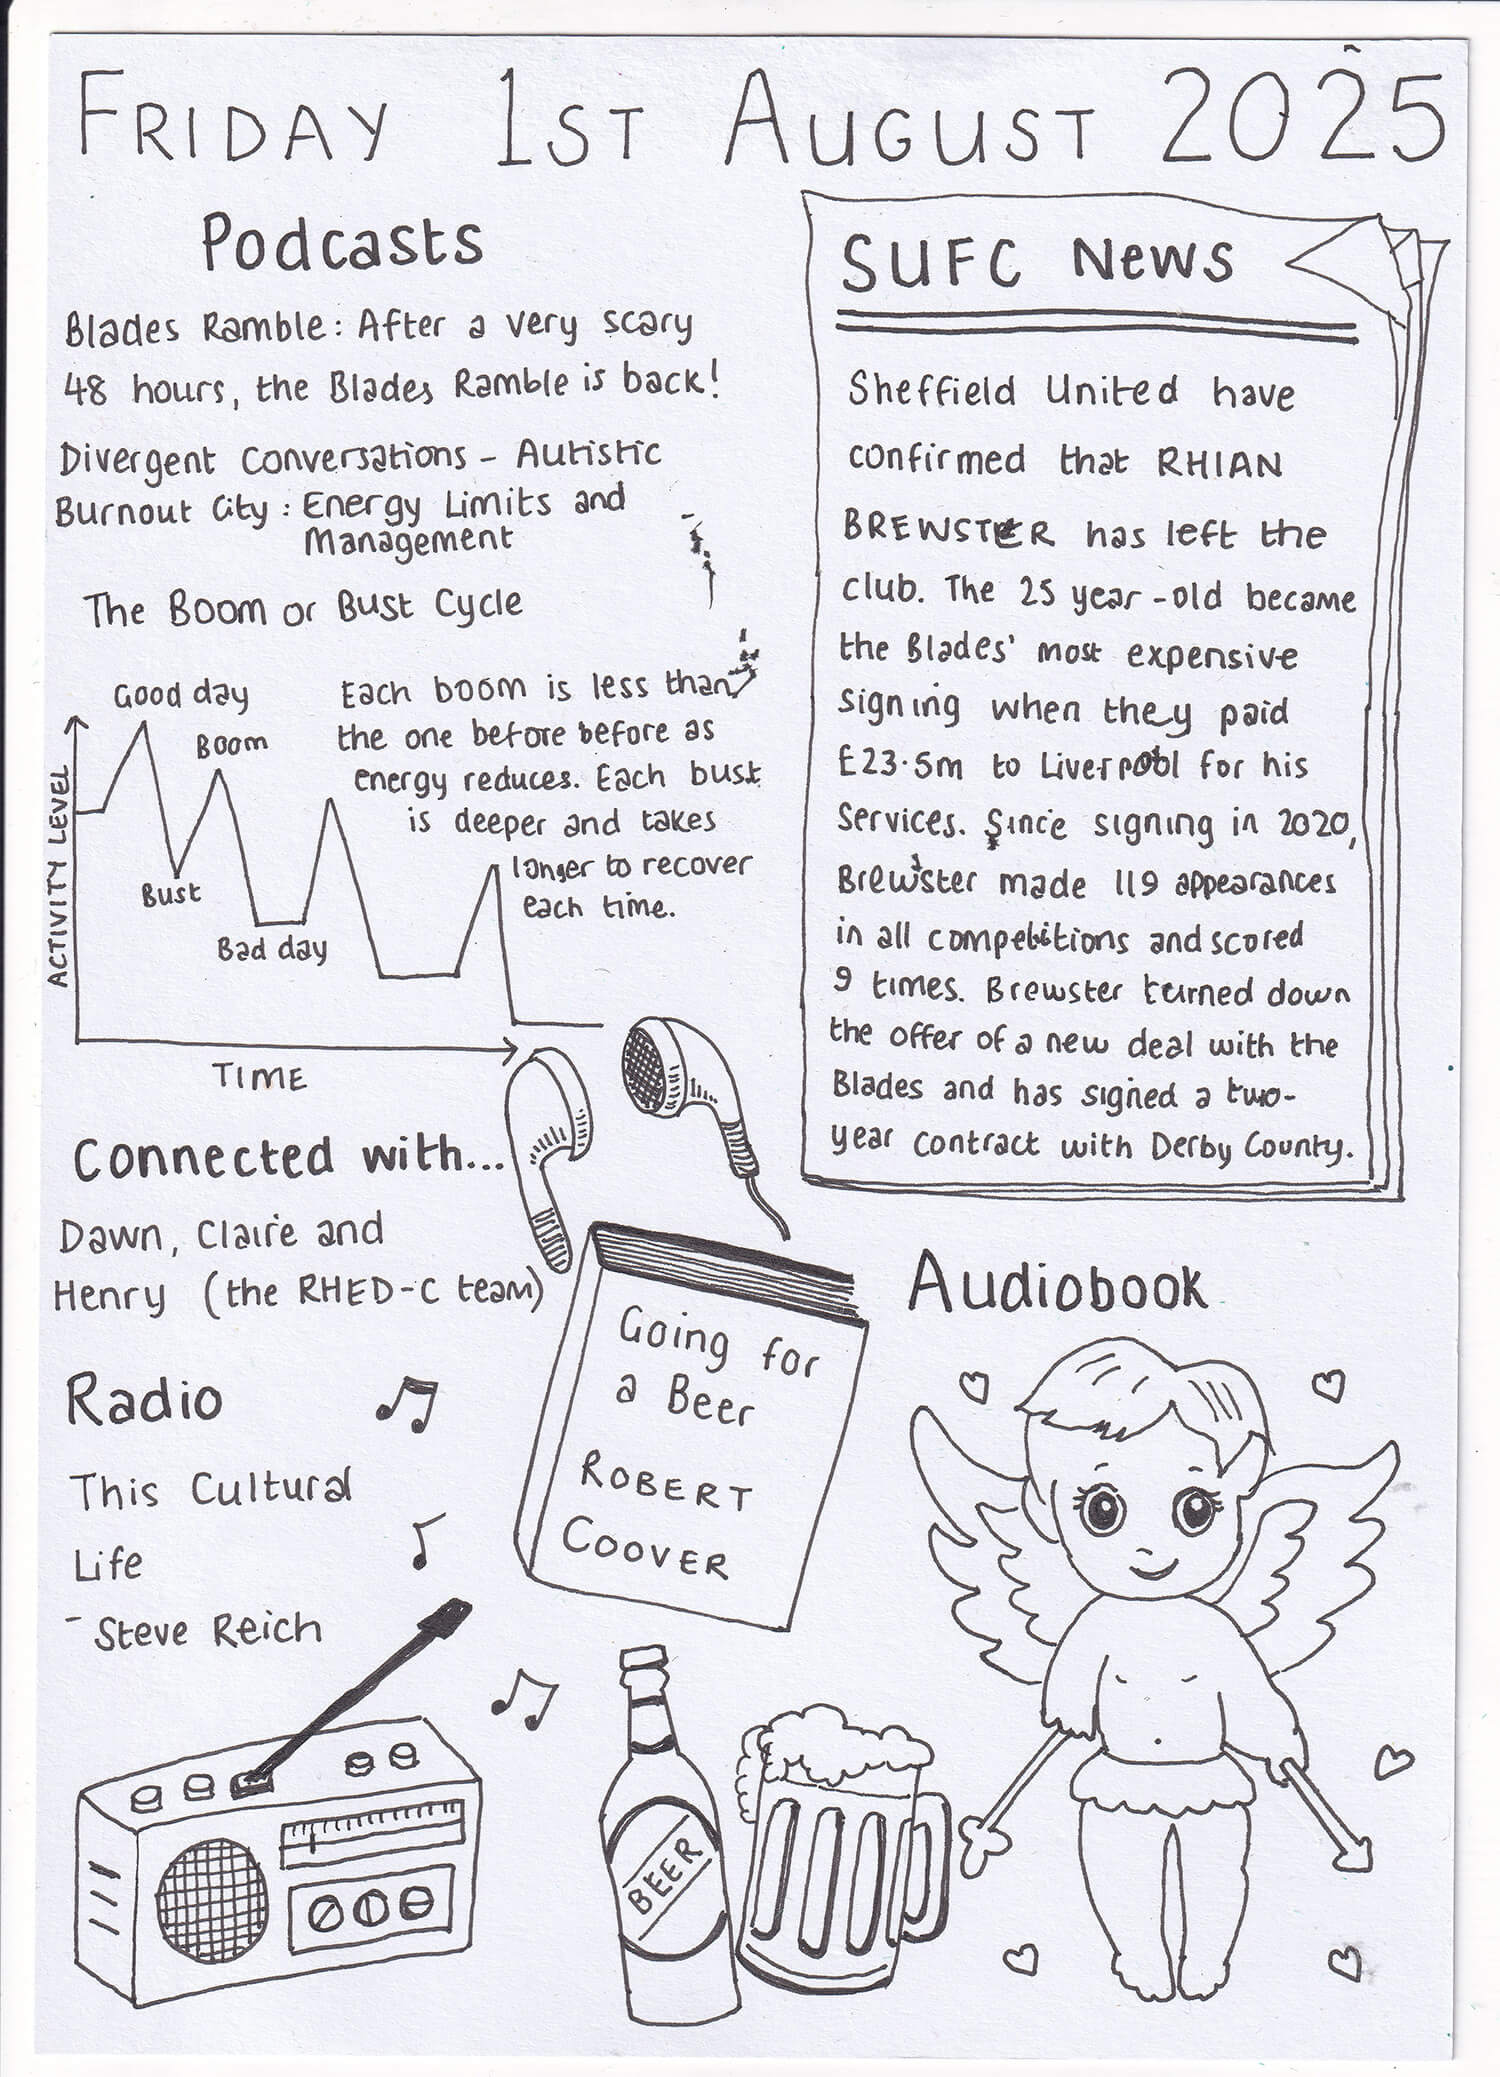 FRIDAY 1ST AUGUST 2025
Podcasts
Blades Ramble: After a very scary
48 hours, the Blades Ramble is back!
Divergent Conversations - Autistic
Burnout City: Energy Limits and
Management
The Boom or Bust Cycle
Good day
Boom
Bust
Bad day
ACTIVITY LEVEL
TIME
Each boom is less than
the one before before as
energy reduces. Each bust
is deeper and takes
longer to recover
each time.
SUFC News
Sheffield United have
confirmed that RHIAN
BREWSTER has left the
club. The 25 year-old became
the Blades' most expensive
signing when they paid
£23.5m to Liverpool for his
services. Since signing in 2020,
Brewster made 119 appearances
in all competitions and scored
9 times. Brewster turned down
the offer of a new deal with the
Blades and has signed a two-
year contract with Derby County.
Connected with...
Dawn, Claire and
Henry (the RHED-C team)
Radio
This Cultural
Life
- Steve Reich
Audiobook
Going for
a Beer
ROBERT
COOVER
BEER